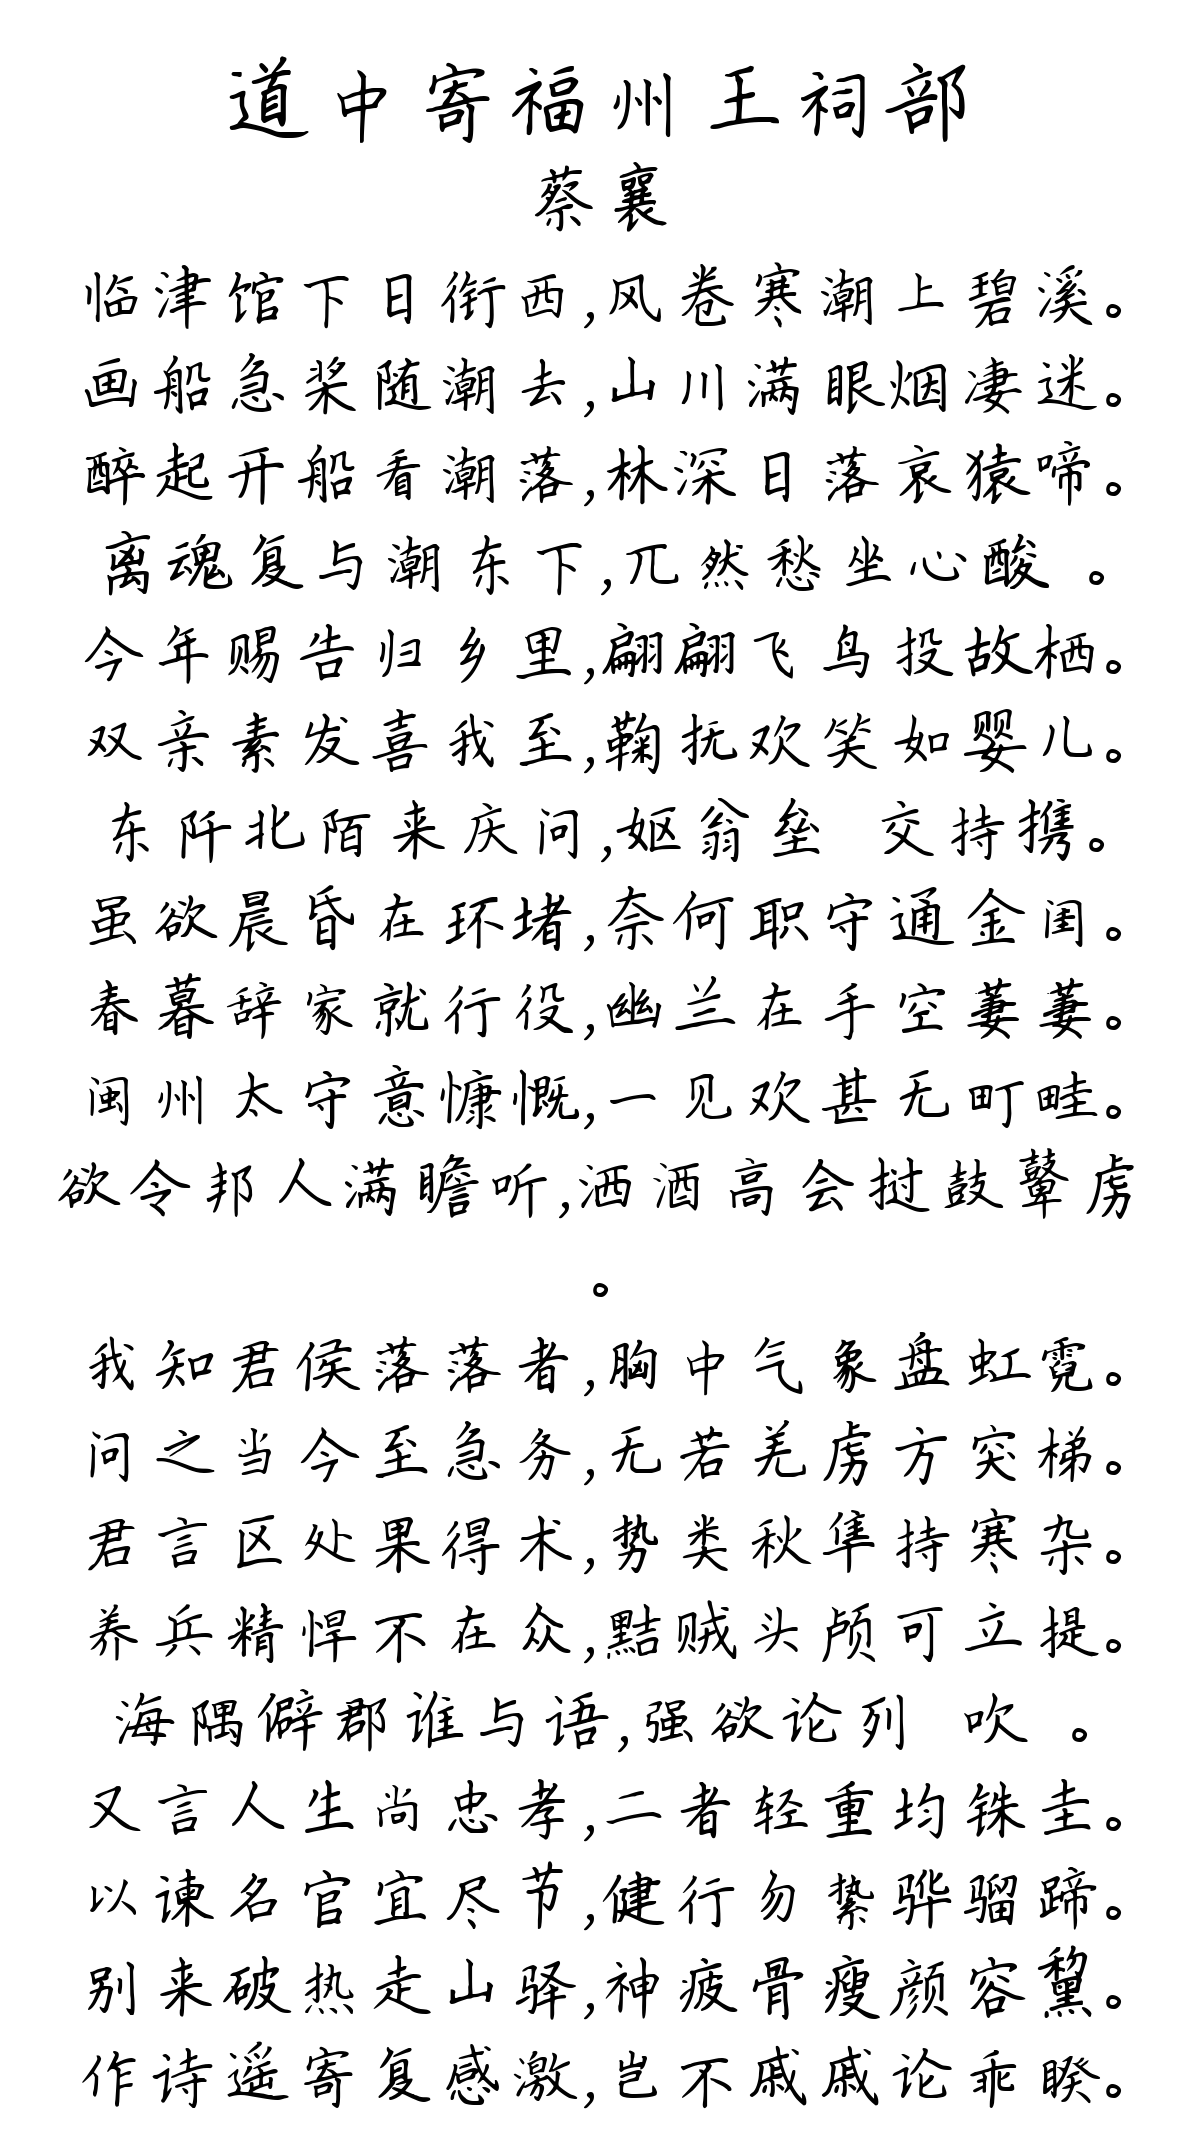 道中寄福州王祠部
蔡襄
临津馆下日衔西,风卷寒潮上碧溪。
画船急桨随潮去,山川满眼烟凄迷。
醉起开船看潮落,林深日落哀猿啼。
离魂复与潮东下,兀然愁坐心酸 。
今年赐告归乡里,翩翩飞鸟投故栖。
双亲素发喜我至,鞠抚欢笑如婴儿。
东阡北陌来庆问,妪翁垒 交持携。
虽欲晨昏在环堵,奈何职守通金闺。
春暮辞家就行役,幽兰在手空萋萋。
闽州太守意慷慨,一见欢甚无町畦。
欲令邦人满瞻听,洒酒高会挝鼓鼙虏
。
我知君侯落落者,胸中气象盘虹霓。
问之当今至急务,无若羌虏方突梯。
君言区处果得术,势类秋隼持寒杂。
养兵精悍不在众,黠贼头颅可立提。
海隅僻郡谁与语,强欲论列 吹 。
又言人生尚忠孝,二者轻重均铢圭。
以谏名官宜尽节,健行勿絷骅骝蹄。
别来破热走山驿,神疲骨瘦颜容黧。
作诗遥寄复感激,岂不戚戚论乖睽。